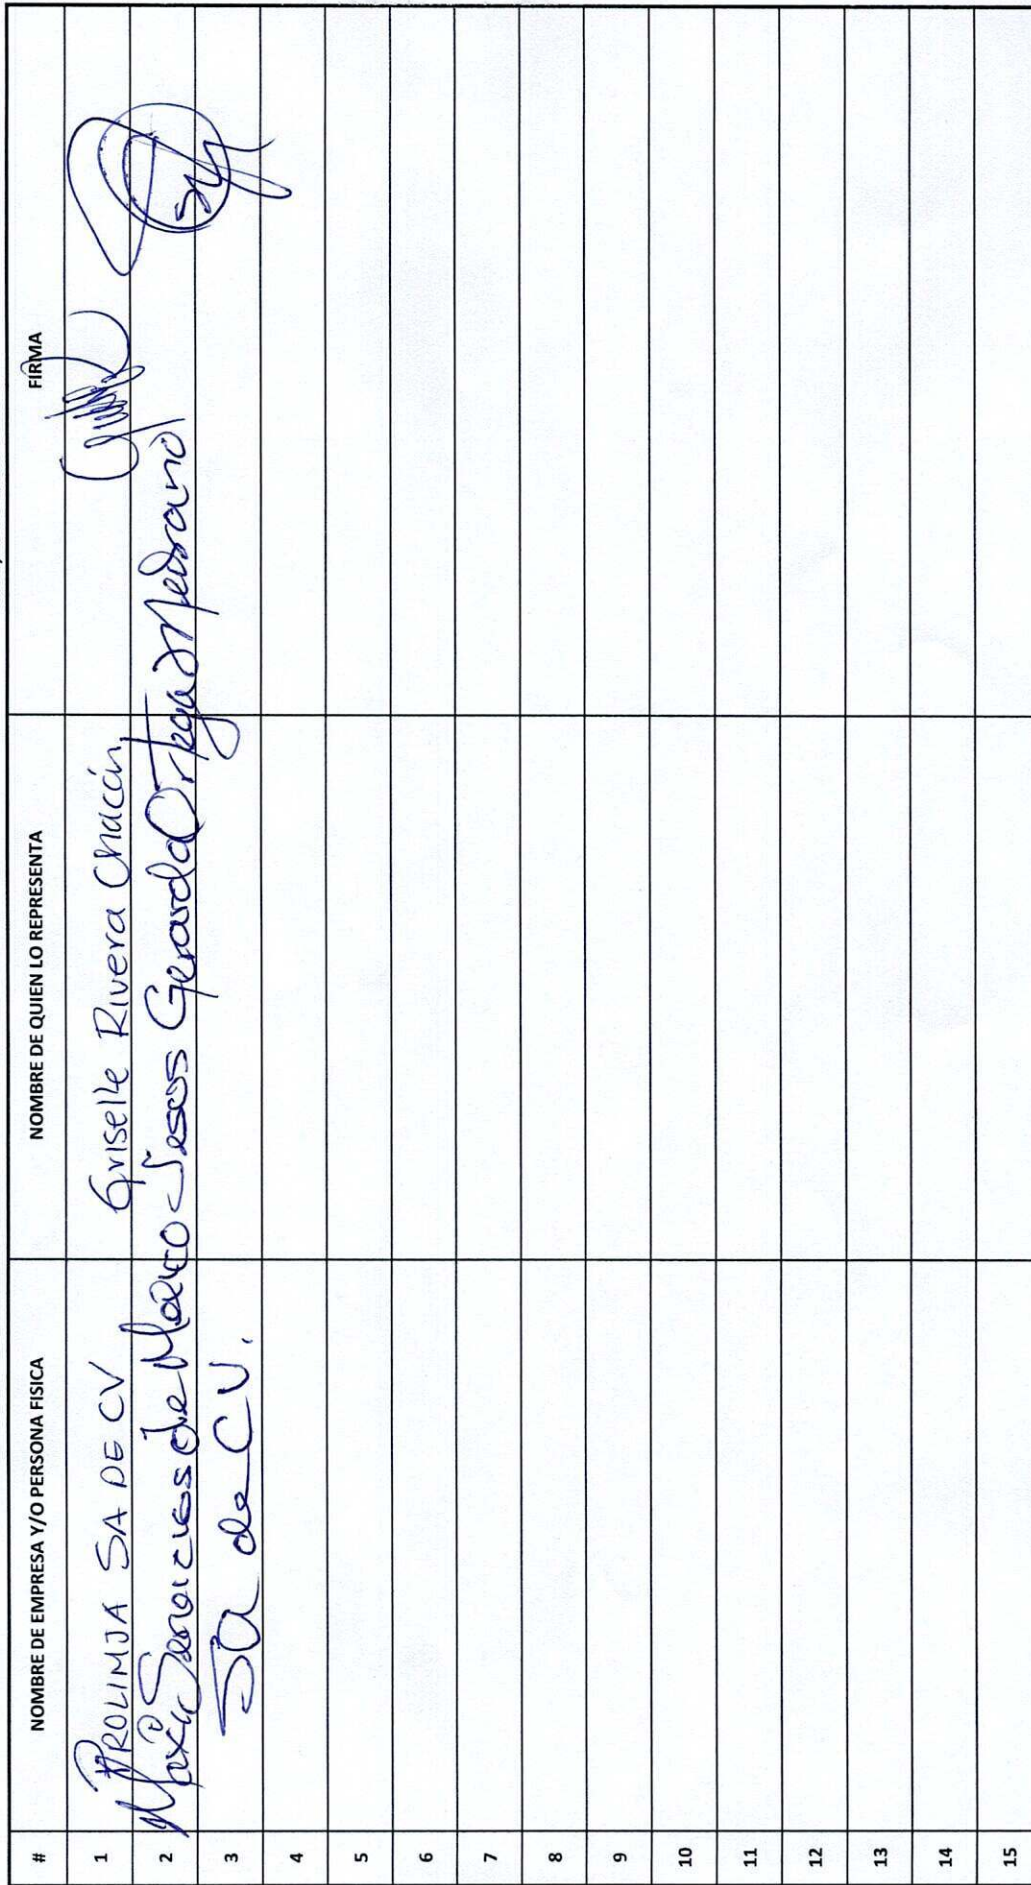 # NOMBRE DE EMPRESA Y/O PERSONA FISICA NOMBRE DE QUIEN LO REPRESENTA FIRMA
1 PROLIMJA SA DE CV Griselle Rivera Chacón
2 Maxi Servicios de México Jesus Gerardo Ortega Medrano
3 Sa de CV.
4
5
6
7
8
9
10
11
12
13
14
15